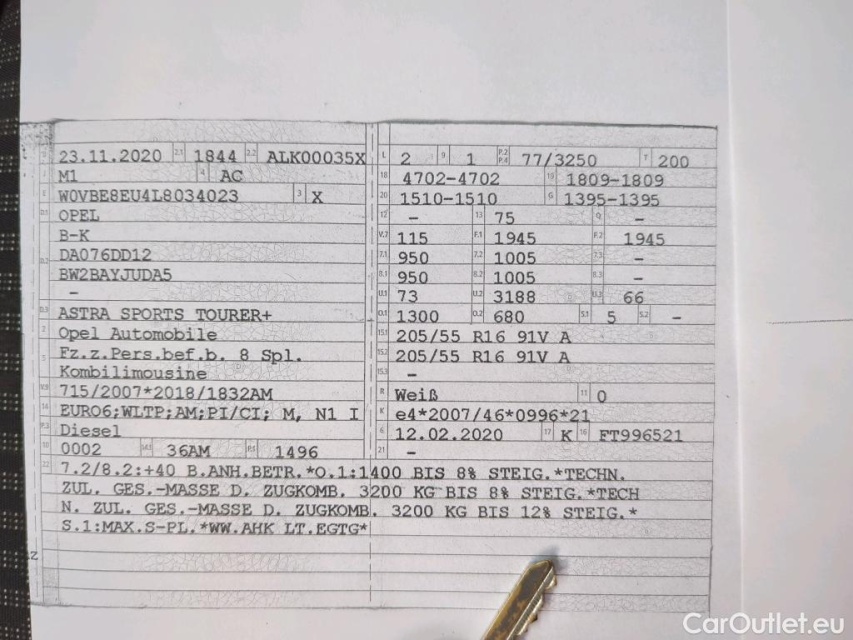 23.11.2020 2.1 1844 2.2 ALK00035X L 2 9 1 P.2 P.4 77/3250 T 200
M1 4 AC 18 4702-4702 19 1809-1809
W0VBE8EU4L8034023 3 X 20 1510-1510 G 1395-1395
D.1 OPEL 12 - 13 75 Q -
B-K V.7 115 F.1 1945 F.2 1945
D.2 DA076DD12 7.1 950 7.2 1005 7.3 -
BW2BAYJUDA5 8.1 950 8.2 1005 8.3 -
- U.1 73 U.2 3188 U.3 66
D.3 ASTRA SPORTS TOURER+ O.1 1300 O.2 680 S.1 5 S.2 -
2 Opel Automobile 15.1 205/55 R16 91V A
5 Fz.z.Pers.bef.b. 8 Spl. 15.2 205/55 R16 91V A
Kombilimousine 15.3 -
V.9 715/2007*2018/1832AM R Weiß 11 0
14 EURO6;WLTP;AM;PI/CI; M, N1 I K e4*2007/46*0996*21
P.3 Diesel 6 12.02.2020 17 K 16 FT996521
10 0002 14.1 36AM P.1 1496 21 -
22 7.2/8.2:+40 B.ANH.BETR.*O.1:1400 BIS 8% STEIG.*TECHN.
ZUL. GES.-MASSE D. ZUGKOMB. 3200 KG BIS 8% STEIG.*TECH
N. ZUL. GES.-MASSE D. ZUGKOMB. 3200 KG BIS 12% STEIG.*
S.1:MAX.S-PL.*WW.AHK LT.EGTG*
CarOutlet.eu